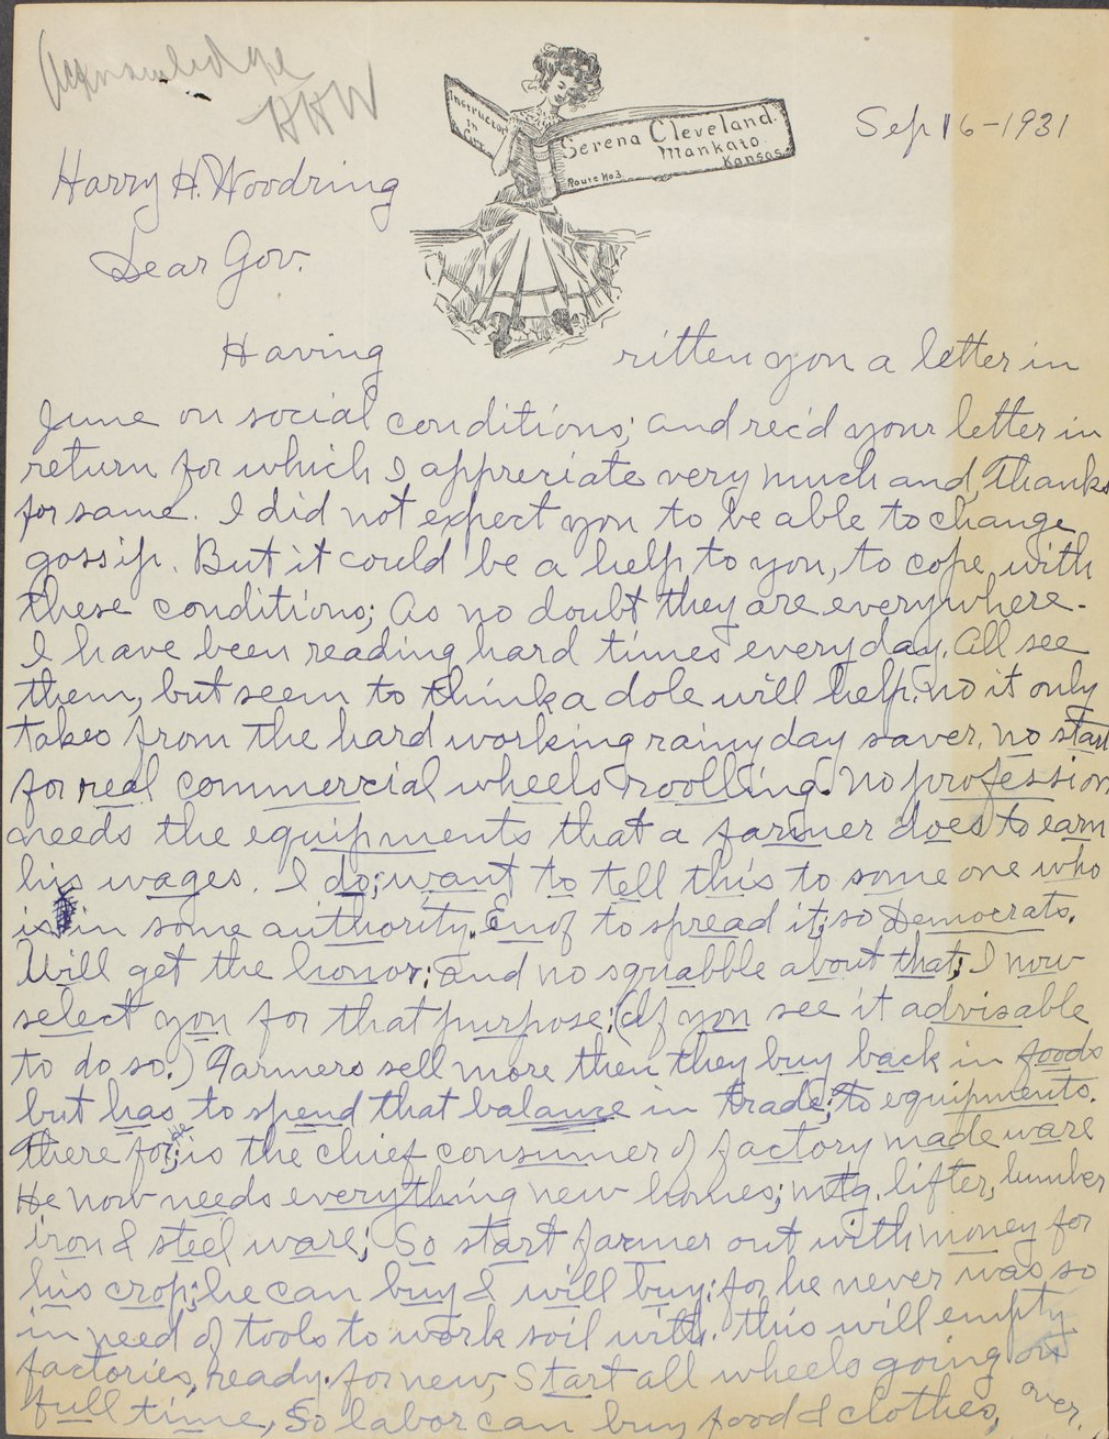 Acknowledge
HHW
Instructor
in
Serena Cleveland.
Mankato
Kansas.
Route No3.
Sep 16-1931
Harry H. Woodring
Dear Gov.
Having ritten you a letter in
June on social conditions; and rec'd your letter in
return for which I appreriate very much and, Thanks
for same. I did not expect you to be able to change
gossip. But it could be a help to you, to cope, with
these conditions; As no doubt they are everywhere.
I have been reading hard times every day. All see
them, but seem to think a dole will help. no it only
takes from the hard working rainy day saver. no start
for real commercial wheels roolling. No profession
needs the equipments that a farmer does to earn
his wages. I do; want to tell this to some one who
is in some authority. Enof to spread it; so Democrats.
Will get the honor: and no sqabble about that; I now
select you for that purpose: (If you see it advisable
to do so.) Farmers sell more then they buy back in foods
but has to spend that balance in trade; to equipments.
There for; he is the chief consumer of factory made ware
He now needs everything new homes; mtg. lifter, lumber
iron & steel ware; So start farmer out with money for
his crop; he can buy & will buy: for he never was so
in need of tools to work soil with. this will empty
factories, ready for new, Start all wheels going on
full time, So labor can buy food & clothes, over.